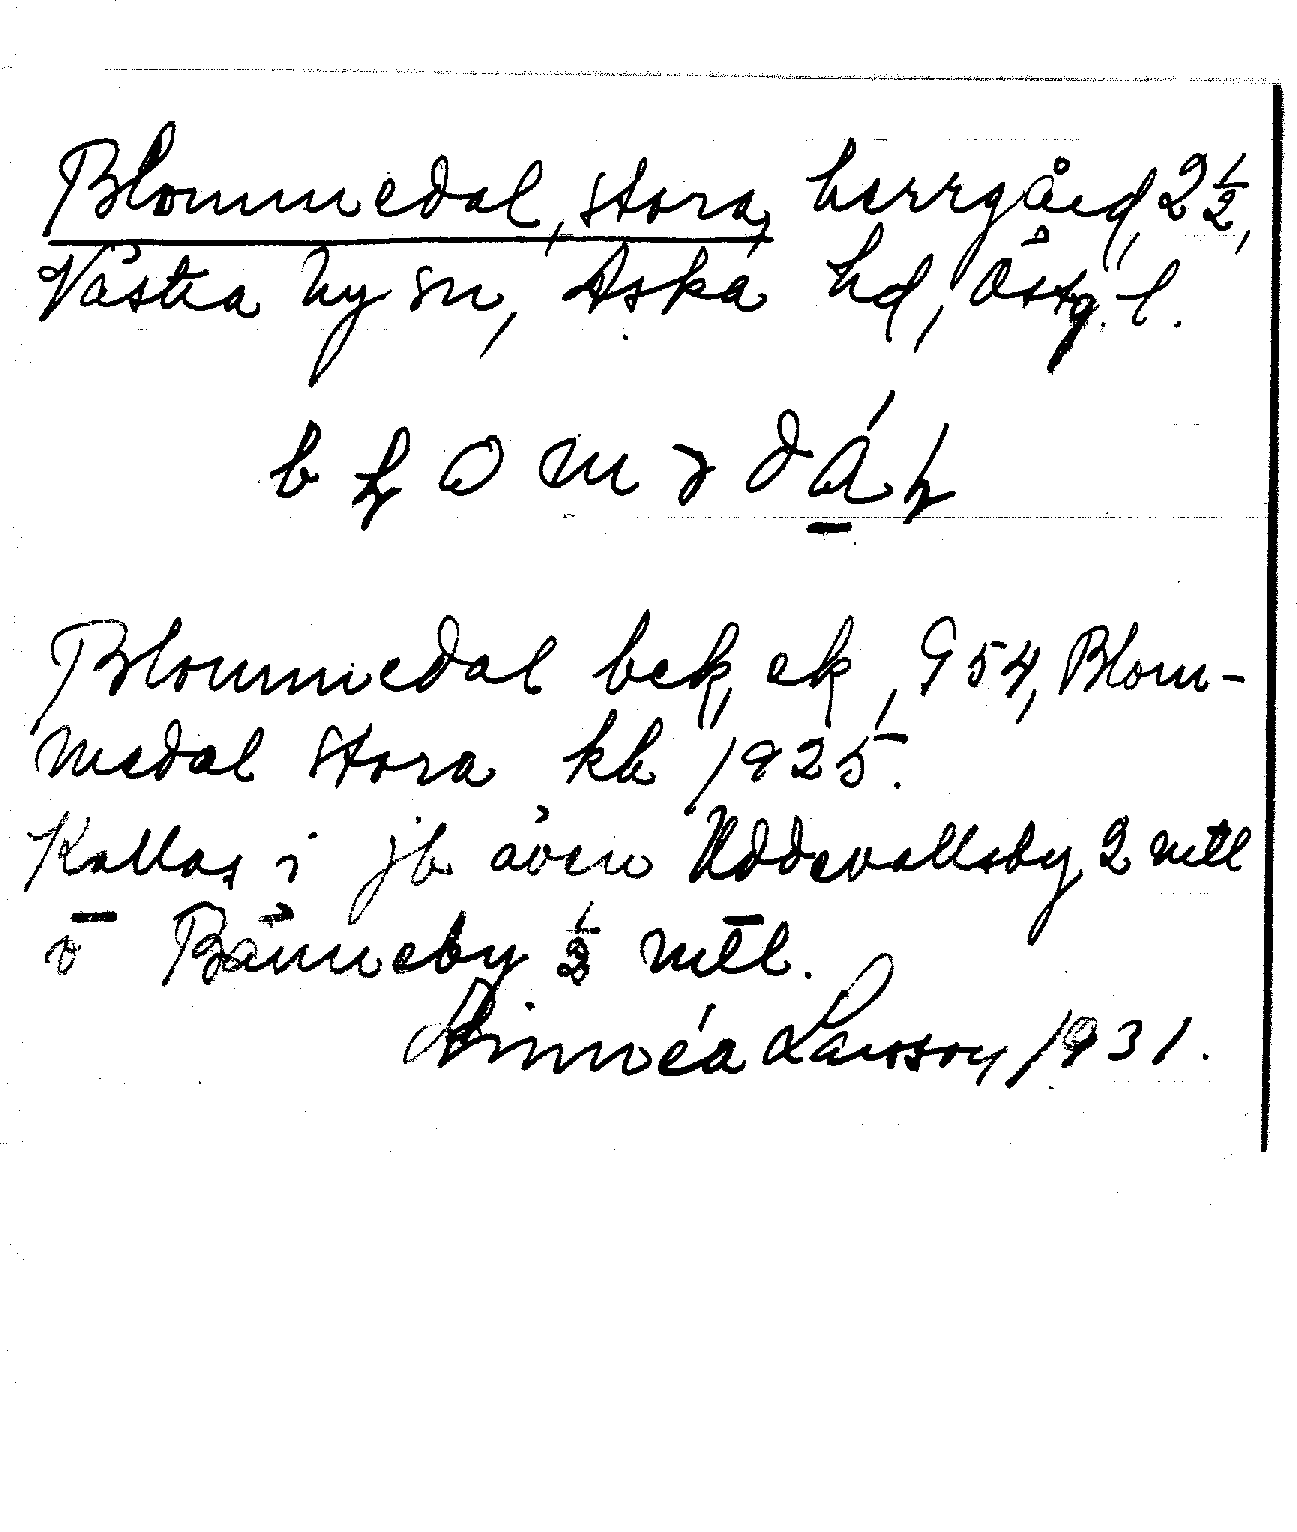 Blommedal, stora, herrgård, 2 1/2,
Västra Ny sn, Aska hd, Östg. l.
Blommedal bek, ek, 954, Blom-
medal stora kb 1925.
Kallas i jb även Uddevallsby 2 mtl
o Bänneby 1/2 mtl.
Linnéa Larsson 1931.